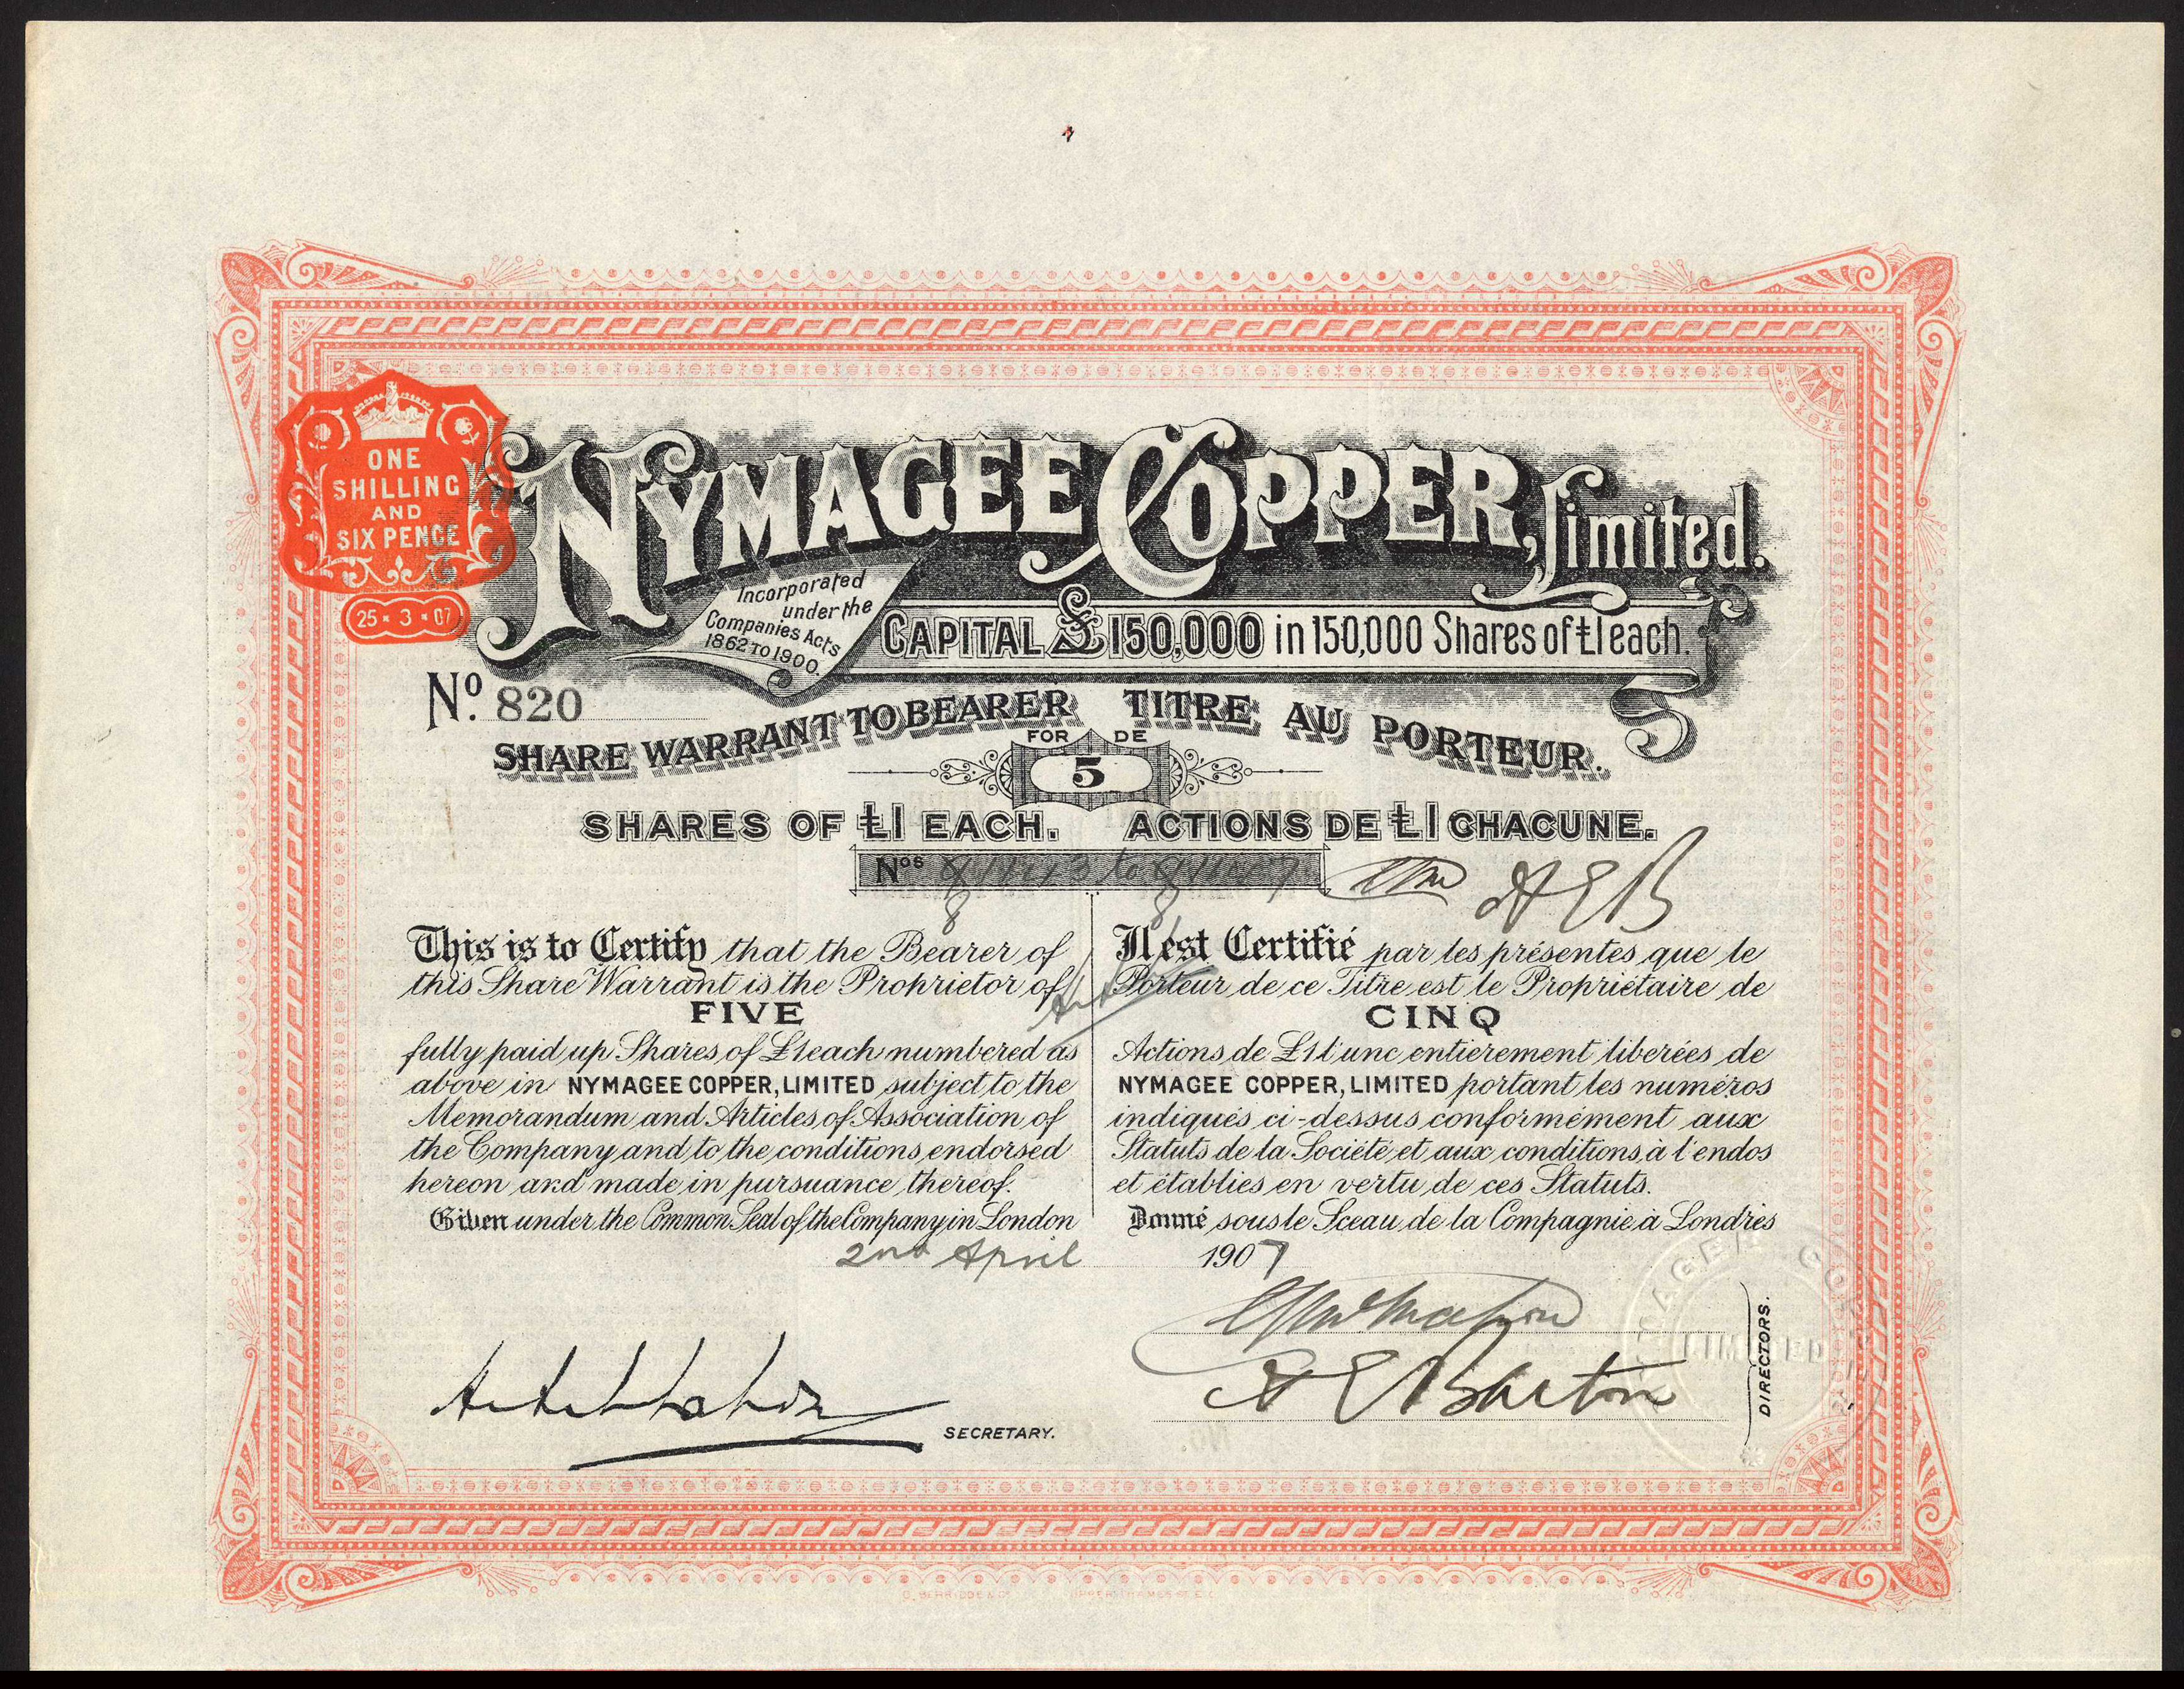 ONE
SHILLING
AND
SIX PENCE
25 · 3 · 07
NYMAGEE COPPER, Limited.
Incorporated
under the
Companies Acts
1862 TO 1900.
CAPITAL £150,000 in 150,000 Shares of £1 each.
No. 820
SHARE WARRANT TO BEARER TITRE AU PORTEUR.
FOR DE
5
SHARES OF £1 EACH. ACTIONS DE £1 CHACUNE.
Nos
A E B
This is to Certify that the Bearer of
this Share Warrant is the Proprietor of
FIVE
fully paid up Shares of £1 each numbered as
above in NYMAGEE COPPER, LIMITED subject to the
Memorandum and Articles of Association of
the Company and to the conditions endorsed
hereon and made in pursuance thereof.
Given under the Common Seal of the Company in London
2nd April
Il est Certifié par les présentes que le
Porteur de ce Titre est le Propriétaire de
CINQ
Actions de £1 l'une entièrement liberées de
NYMAGEE COPPER, LIMITED portant les numéros
indiqués ci-dessus conformément aux
Statuts de la Société et aux conditions à l'endos
et établies en vertu de ces Statuts.
Donné sous le Sceau de la Compagnie à Londres
1907
A E Barton
DIRECTORS.
LIMITED
SECRETARY.